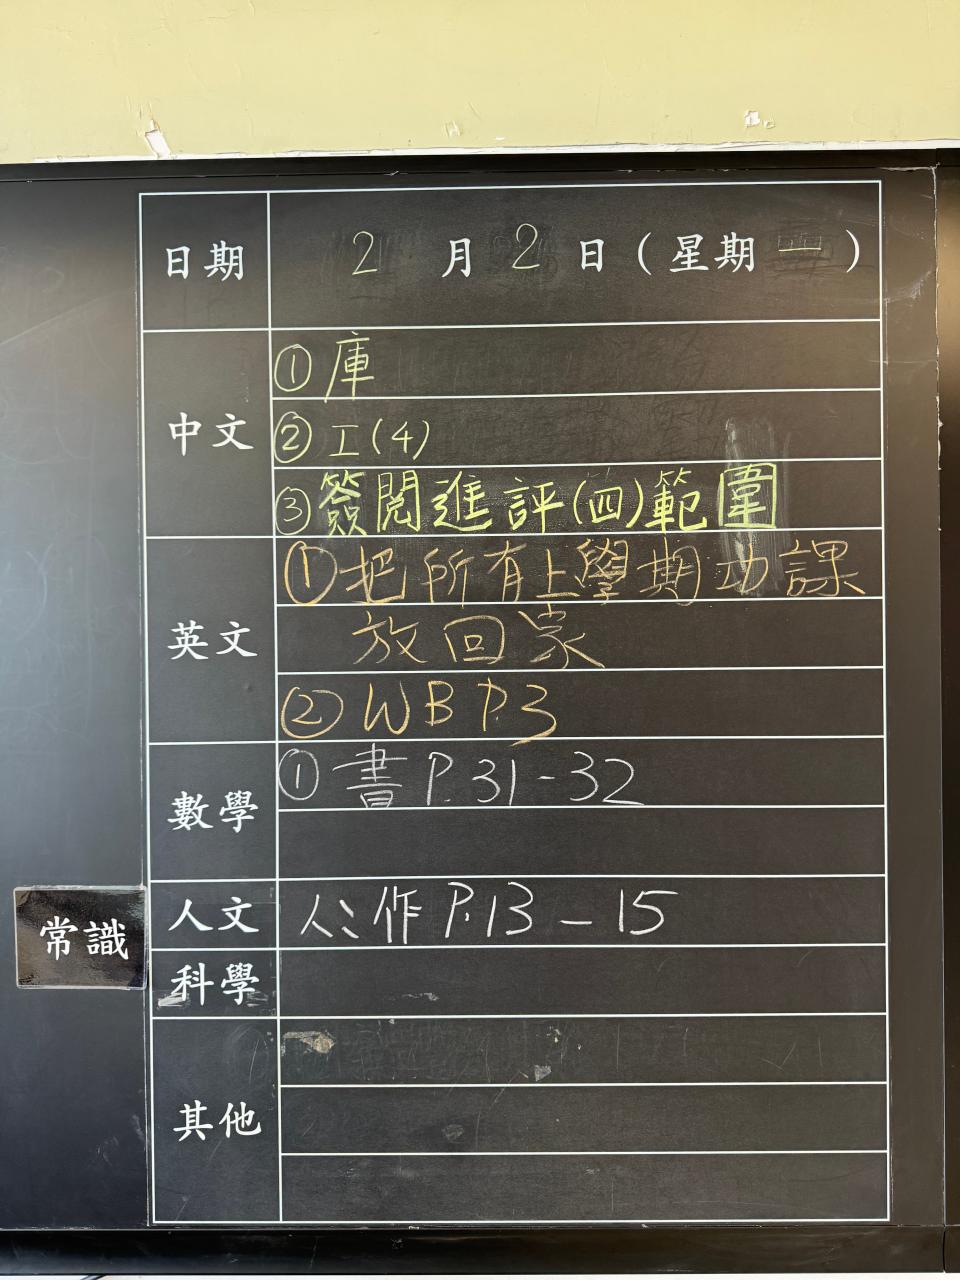 日期 2 月 2 日 ( 星期 一 )
中文
① 庫
② 工(4)
③ 簽閱進評(四)範圍
英文
① 把所有上學期功課
放回家
② WB P.3
數學
① 書 P.31-32
人文
人:作 P.13-15
常識
科學
其他